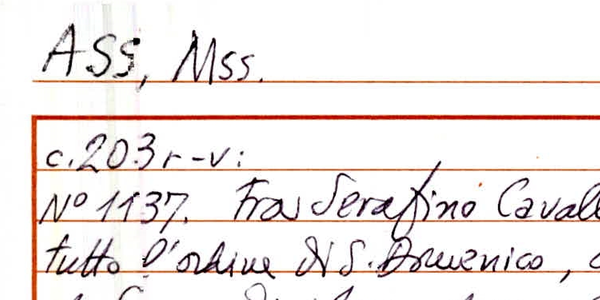 Ass, Mss.
c.203r-v:
N° 1137. Fra Serafino Caval
tutto l'ordine di S. Domenico,